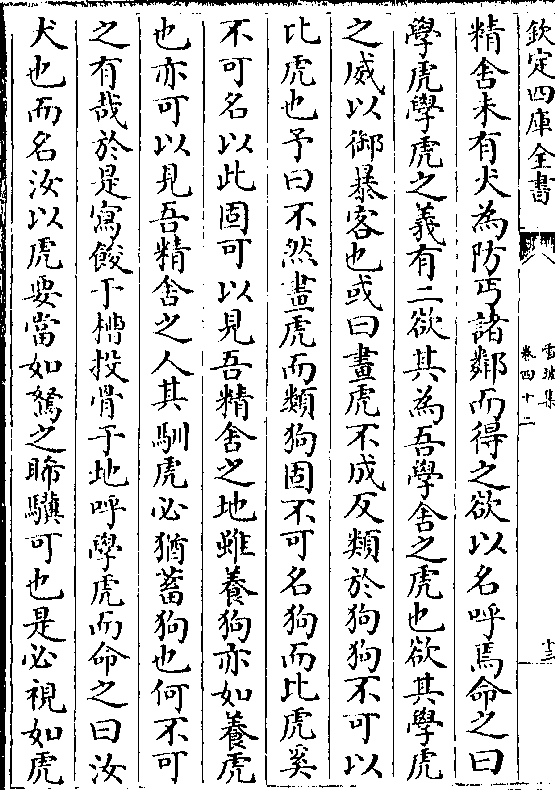 欽定四庫全書
雪坡集
卷四十二
十三
精舍未有犬為防丐諸鄰而得之欲以名呼焉命之曰
學虎學虎之義有二欲其為吾學舍之虎也欲其學虎
之威以御暴客也或曰畫虎不成反類於狗狗不可以
比虎也予曰不然畫虎而類狗固不可名狗而比虎奚
不可名以此固可以見吾精舍之地雖養狗亦如養虎
也亦可以見吾精舍之人其馴虎必猶蓄狗也何不可
之有哉於是寫餕于槽投骨于地呼學虎而命之曰汝
犬也而名汝以虎要當如駑之睎驥可也是必視如虎